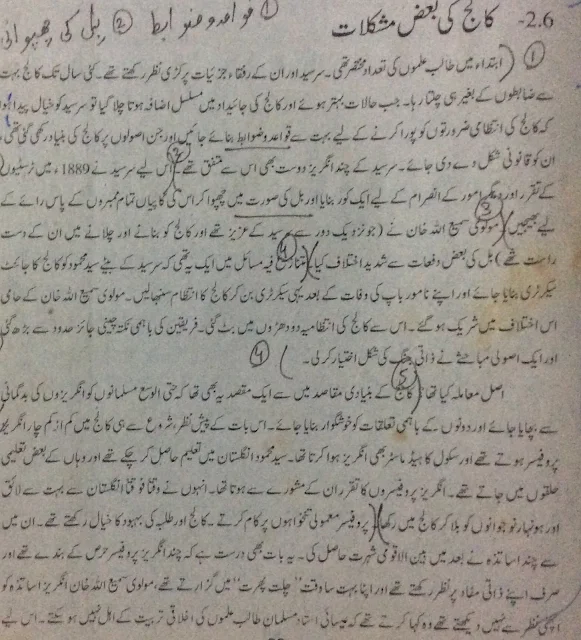 ① قواعد و ضوابط ② بل کی چھپوائی
2.6- کالج کی بعض مشکلات
① (ابتداء میں طالب علموں کی تعداد مختصر تھی۔ سرسید اور ان کے رفقاء جزئیات پر کڑی نظر رکھتے تھے۔ کئی سال تک کالج بہت
سے ضابطوں کے بغیر ہی چلتا رہا۔ جب حالات بہتر ہوئے اور کالج کی جائیداد میں مسلسل اضافہ ہوتا چلا گیا تو سرسید کو خیال پیدا ہوا
کہ کالج کی انتظامی ضرورتوں کو پورا کرنے کے لیے بہت سے قواعد و ضوابط بنائے جائیں اور جن اصولوں پر کالج کی بنیاد رکھی گئی تھی
ان کو قانونی شکل دے دی جائے۔ سرسید کے چند انگریز دوست بھی اس سے متفق تھے۔ اس لیے سرسید نے 1889ء میں ٹرسٹیوں
کے تقرر اور دیگر امور کے انصرام کے لیے ایک کوڈ بنایا اور بل کی صورت میں چھپوا کر اس کی کاپیاں تمام ممبروں کے پاس رائے کے
لیے بھیجیں) مولوی سمیع اللہ خان نے (جو نزدیک دور سے سرسید کے عزیز تھے اور کالج کو بنانے اور چلانے میں ان کے دست
راست تھے) بل کی بعض دفعات سے شدید اختلاف کیا) متنازع فیہ مسائل میں ایک یہ تھی کہ سرسید کے بیٹے سید محمود کو کالج کا جائنٹ
سیکرٹری بنایا جائے اور اپنے نامور باپ کی وفات کے بعد یہی سیکرٹری بن کر کالج کا انتظام سنبھالیں۔ مولوی سمیع اللہ خان کے حامی
اس اختلاف میں شریک ہو گئے۔ اس سے کالج کی انتظامیہ دو دھڑوں میں بٹ گئی۔ فریقین کی باہمی نکتہ چینی جائز حدود سے بڑھ گئی
اور ایک اصولی مباحثے نے ذاتی جنگ کی شکل اختیار کر لی۔ )
اصل معاملہ کیا تھا؟ (کالج کے بنیادی مقاصد میں سے ایک مقصد یہ بھی تھا کہ حتی الوسع مسلمانوں کو انگریزوں کی بدگمانی
سے بچایا جائے اور دونوں کے باہمی تعلقات کو خوشگوار بنایا جائے۔ اس بات کے پیش نظر، شروع سے ہی کالج میں کم از کم چار انگریز
پروفیسر ہوتے تھے اور سکول کا ہیڈ ماسٹر بھی انگریز ہوا کرتا تھا۔ سید محمود انگلستان میں تعلیم حاصل کر چکے تھے اور وہاں کے بعض تعلیمی
حلقوں میں جانے جاتے تھے۔ انگریز پروفیسروں کا تقرر ان کے مشورے سے ہوتا تھا۔ انہوں نے وقتاً فوقتاً انگلستان سے بہت سے لائق
اور ہونہار نوجوانوں کو بلا کر کالج میں رکھا) (پروفیسر معمولی تنخواہوں پر کام کرتے۔ کالج اور طلبہ کی بہبود کا خیال رکھتے تھے۔ ان میں
سے چند اساتذہ نے بعد میں بین الاقوامی شہرت حاصل کی۔ یہ بات بھی درست ہے کہ چند انگریز پروفیسر حرص کے بندے تھے اور
صرف اپنے ذاتی مفاد پر نظر رکھتے تھے اور اپنا بہت سا وقت "چلت پھرت" میں گزارتے تھے، مولوی سمیع اللہ خان انگریز اساتذہ کو
اچھی نظر سے نہیں دیکھتے تھے وہ کہا کرتے تھے کہ عیسائی استاد مسلمان طالب علموں کی اخلاقی تربیت کے اہل نہیں ہو سکتے۔ اس لیے